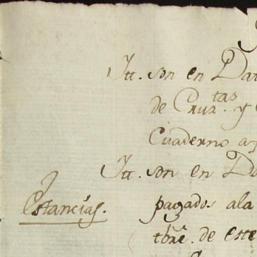 Itt. son en Dat
de Cru.tas y
Cuaderno a
Itt. son en D
Estancias.
pagados ala
tbre. de este